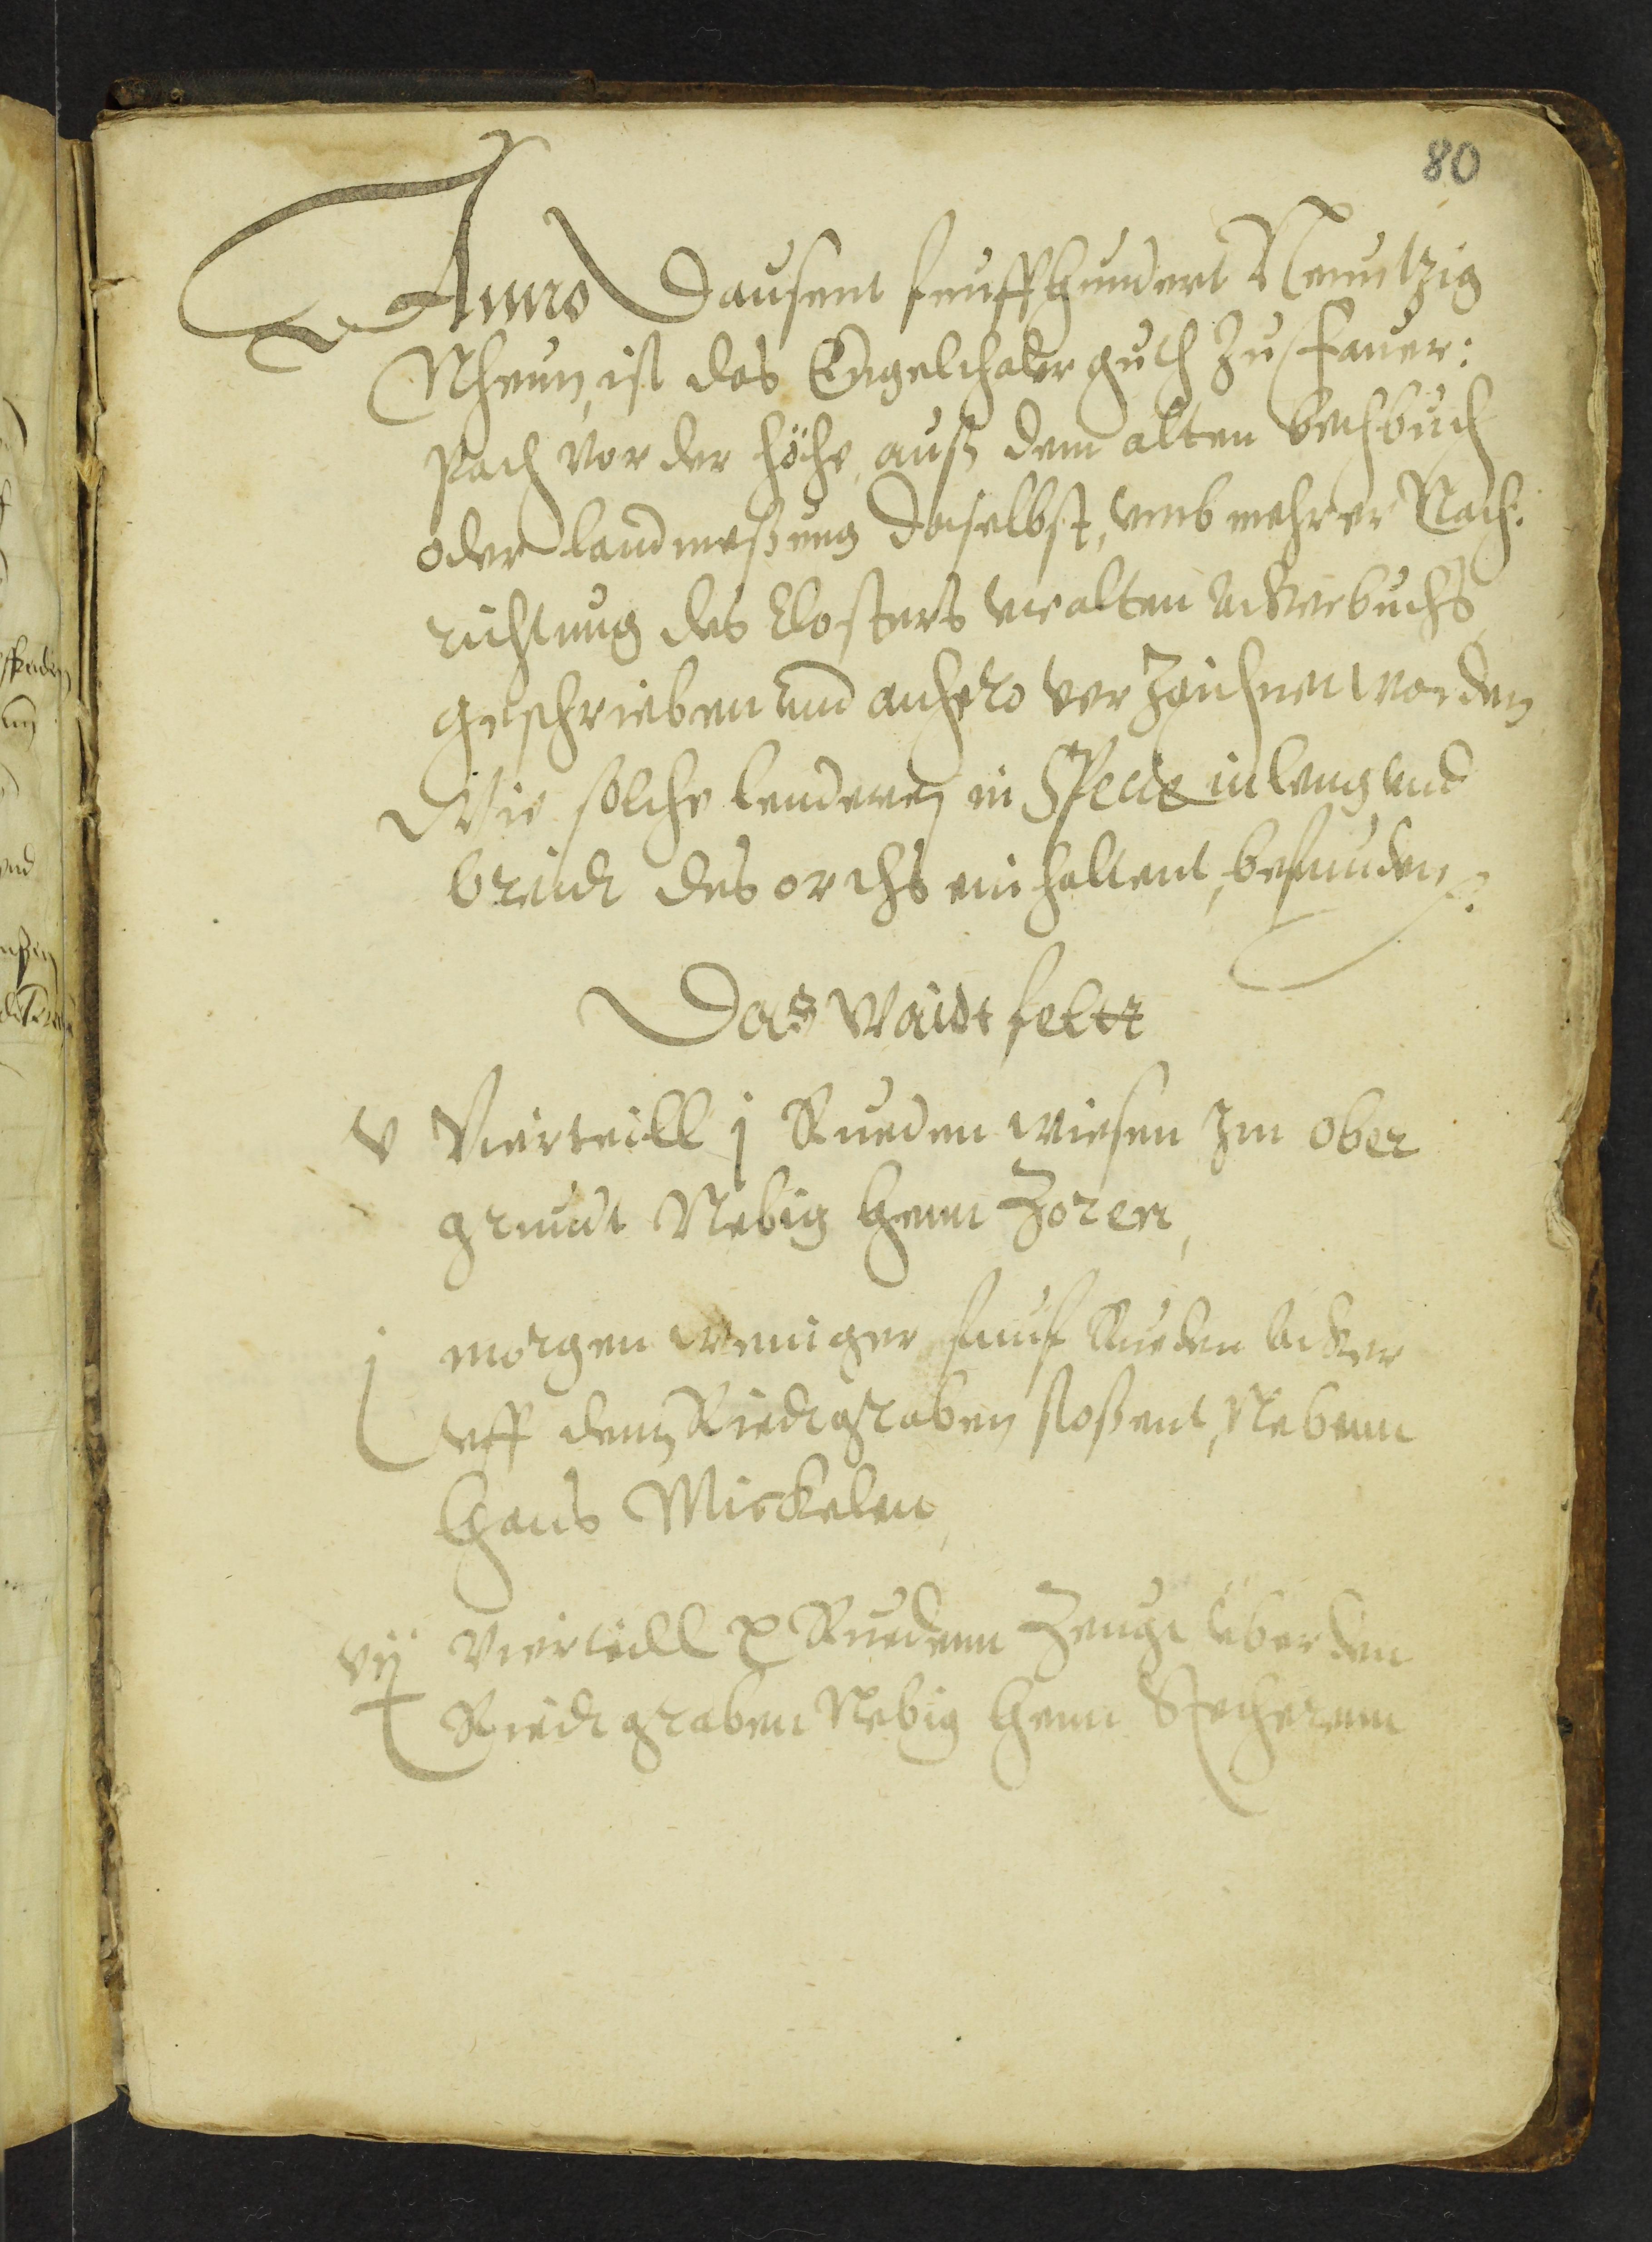 80
Anno Dausent feuffhundert Neuntzig
Nheun, ist das Engelthaler guth zu Fauer:
pach vor der höhe, auß dem alten bethbuch
oder landmeßung daselbst, vmb mehrer Nach:
richtung des Closters vralten Ackerbuchs
geschrieben vnd anhero verzeichnet worden
Wie solche lenderey in Specie in leng vnd
breidt des orths einhaltent, befunden
Das waidt feltt
v Vierteill j Rueden wiesen Im ober
grundt Nebig Henn Zoren,
j morgen weniger funf Rueden Acker
vff dem Riedtgraben stoßent, Nebenn
Hans Mickelen
vij Vierteill x Ruedenn Zeugt über den
Riedt graben Nebig Henn Stecherenn